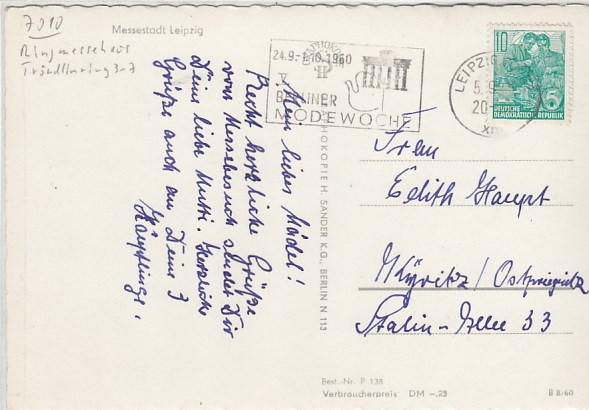 7010
Messestadt Leipzig
Ringmessehaus
Tröndlinring 3-7
24.9.-1.10.1960
V.
BERLINER
MODEWOCHE
LEIPZIG
10
DEUTSCHE
DEMOKRATISCHE REPUBLIK
Mein liebes Mädel!
Recht herzliche Grüße
vom Messebesuch sendet Dir
Deine liebe Mutti. Herzliche
Grüße auch an Deine 3
H. SANDER K.G., BERLIN N 113
Frau
Edith Haupt
Kyritz / Ostprignitz
Stalin-Allee 33
Best.-Nr. P 138
Verbraucherpreis DM -,23
B 8/60